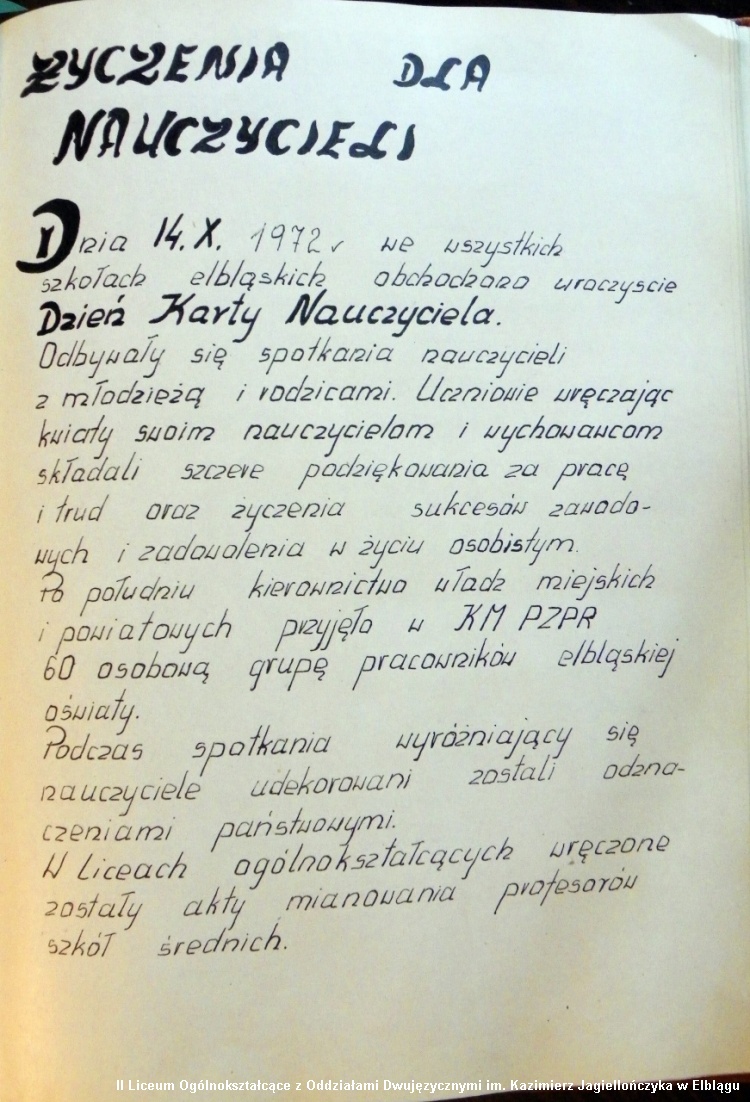 ŻYCZENIA DLA
NAUCZYCIELI
Dnia 14. X. 1972 r we wszystkich
szkołach elbląskich obchodzono uroczyście
Dzień Karty Nauczyciela.
Odbywały się spotkania nauczycieli
z młodzieżą i rodzicami. Uczniowie wręczając
kwiaty swoim nauczycielom i wychowawcom
składali szczere podziękowania za pracę
i trud oraz życzenia sukcesów zawodo-
wych i zadowolenia w życiu osobistym.
Po południu kierownictwo władz miejskich
i powiatowych przyjęło w KM PZPR
60 osobową grupę pracowników elbląskiej
oświaty.
Podczas spotkania wyróżniający się
nauczyciele udekorowani zostali odzna-
czeniami państwowymi.
W Liceach ogólnokształcących wręczone
zostały akty mianowania profesorów
szkół średnich.
II Liceum Ogólnokształcące z Oddziałami Dwujęzycznymi im. Kazimierz Jagiellończyka w Elblągu